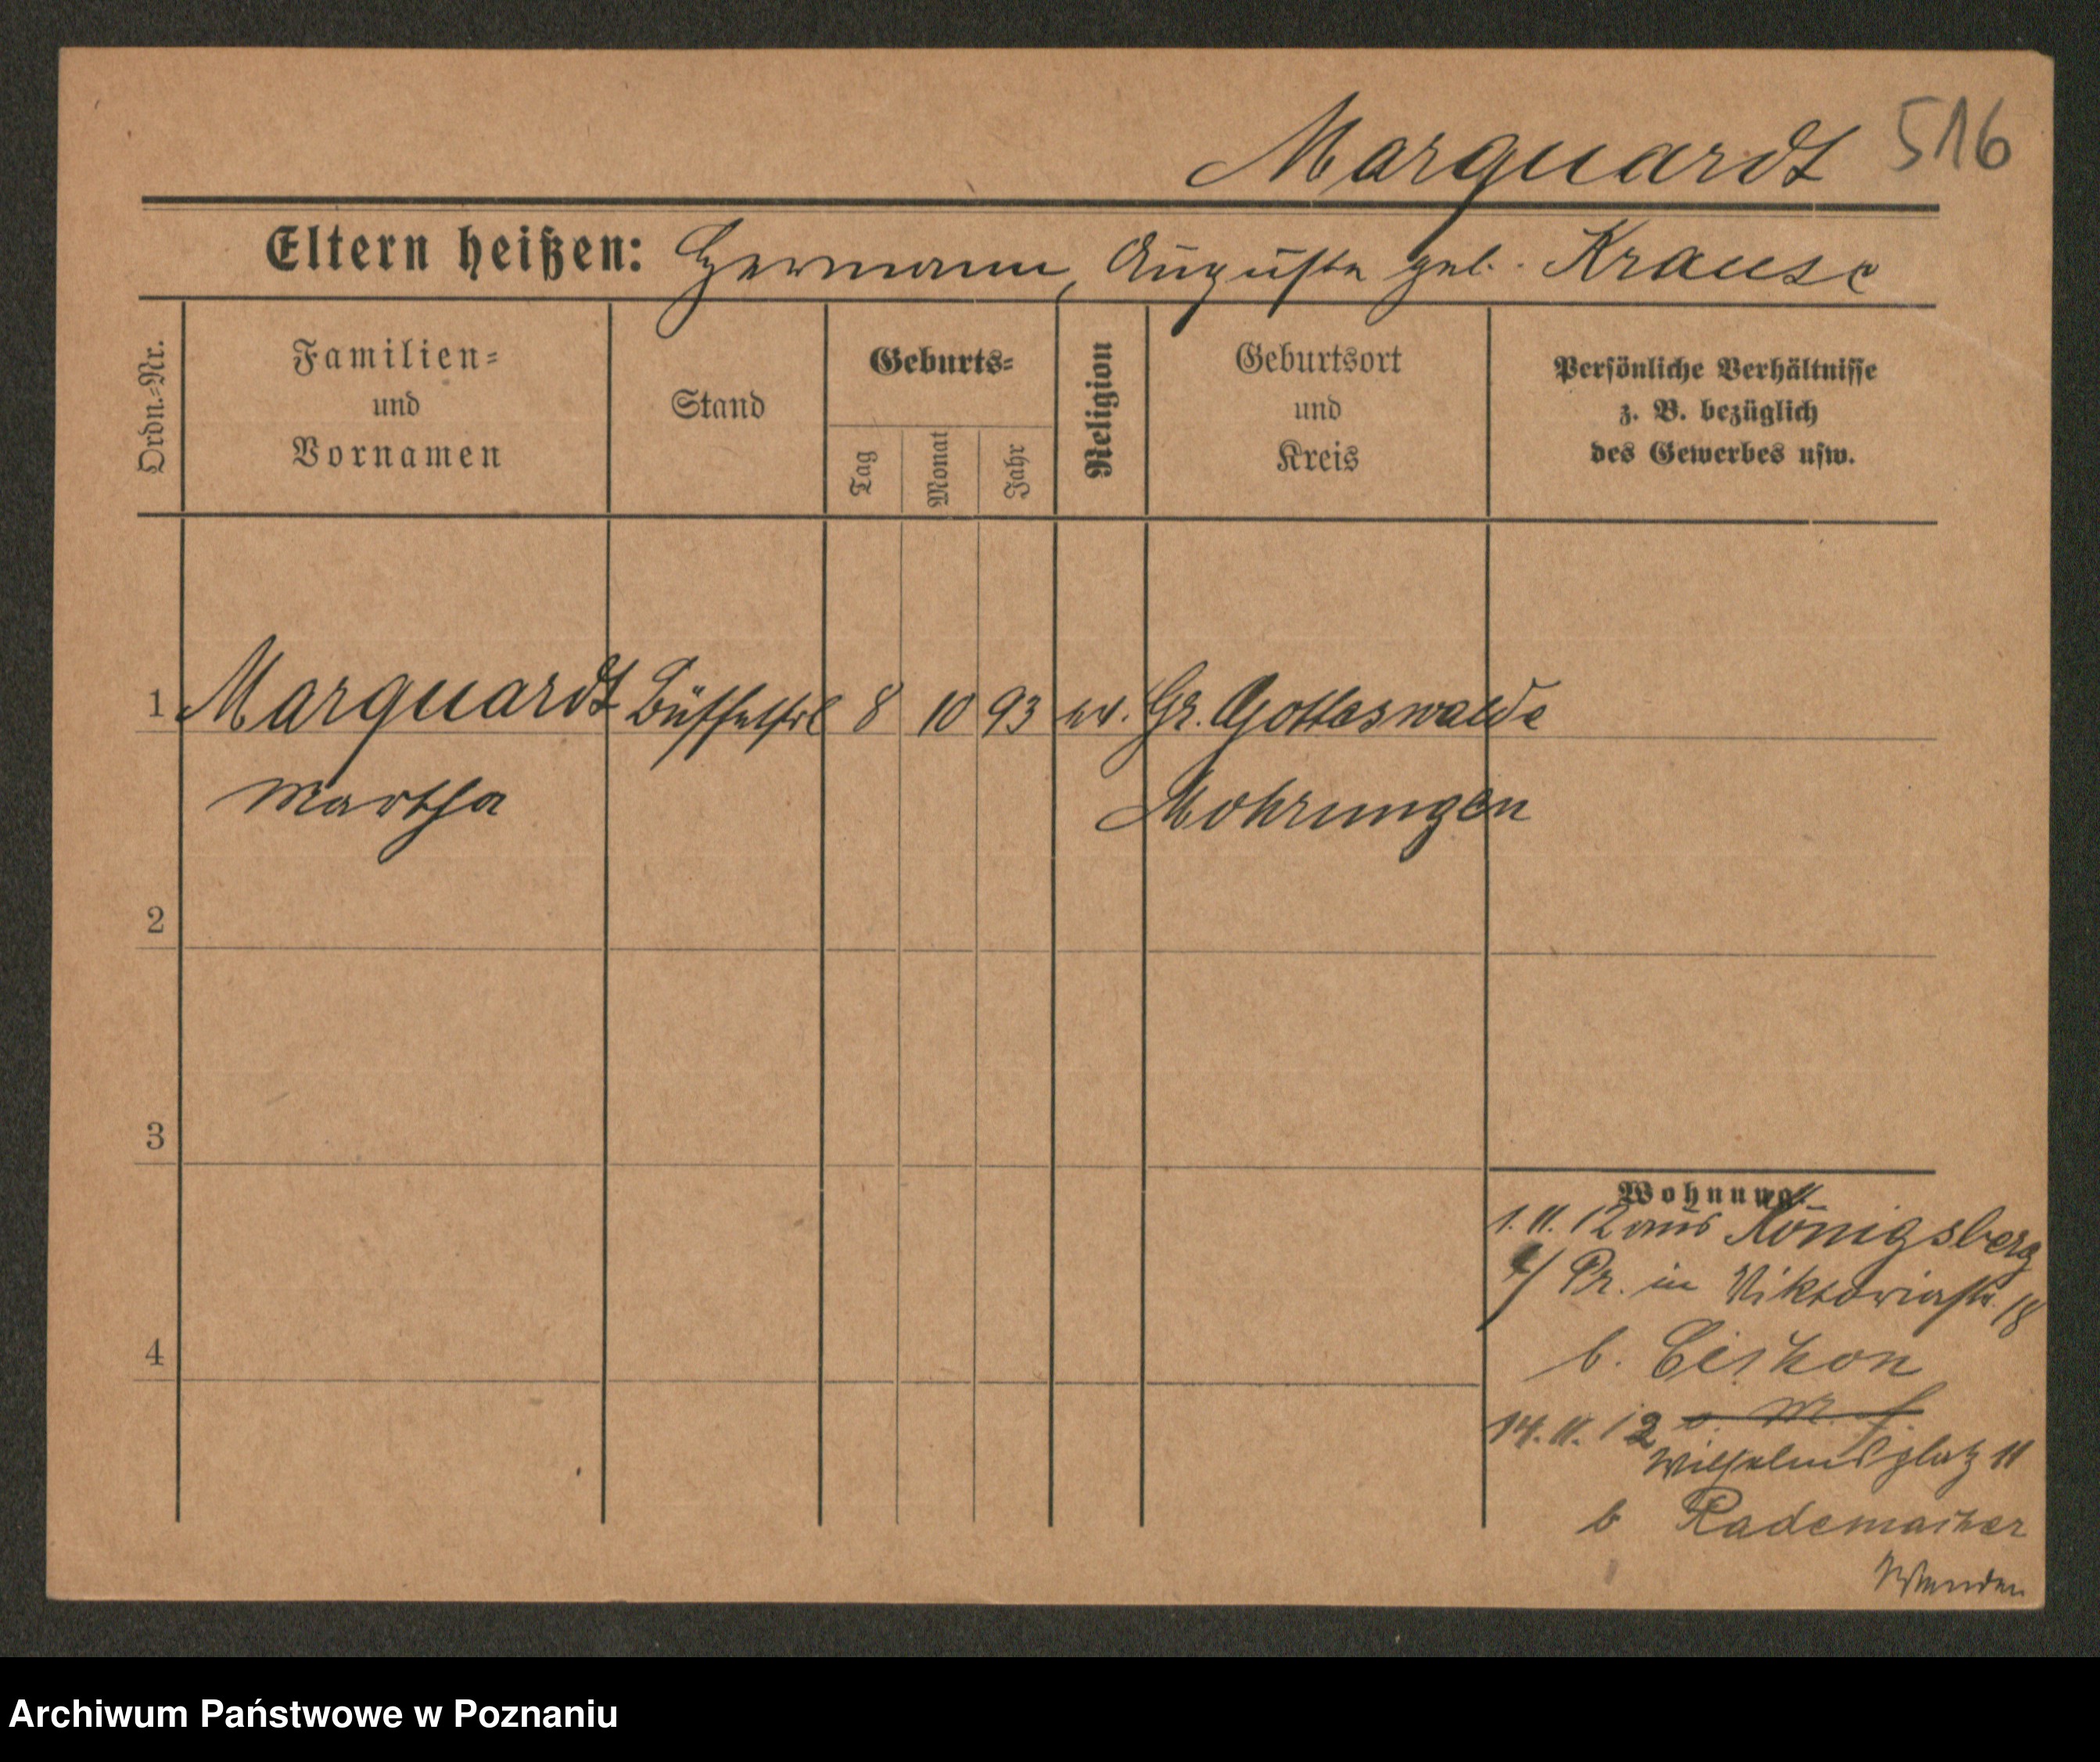 Marquardt 516
Eltern heißen: Hermann, Auguste geb. Krause
Ordn.=Nr.
Familien=
und
Vornamen
Stand
Geburts=
Tag
Monat
Jahr
Religion
Geburtsort
und
Kreis
Persönliche Verhältnisse
z. B. bezüglich
des Gewerbes usw.
1 Marquardt Büffetfrl 8 10 93 ev. Gr. Gotteswalde
Martha Mohrungen
2
3
Wohnung:
1.11.12 aus Königsberg
/ Pr. in Viktoriastr. 18
4
b.
14.11.12
Wilhelmsplatz 11
b Rademacher
Wenden
Archiwum Państwowe w Poznaniu